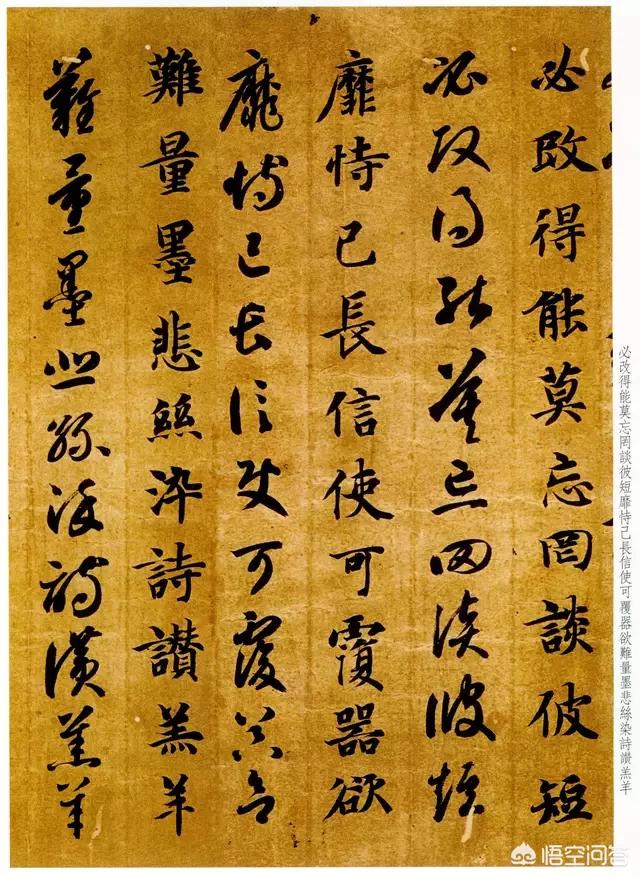 必改得能莫忘罔談彼短靡恃己長信使可覆器欲難量墨悲絲染詩讚羔羊
必改得能莫忘罔談彼短
必改得能莫忘罔談彼短
靡恃己長信使可覆器欲
靡恃己長信使可覆器欲
難量墨悲絲染詩讚羔羊
難量墨悲絲染詩讚羔羊
悟空问答